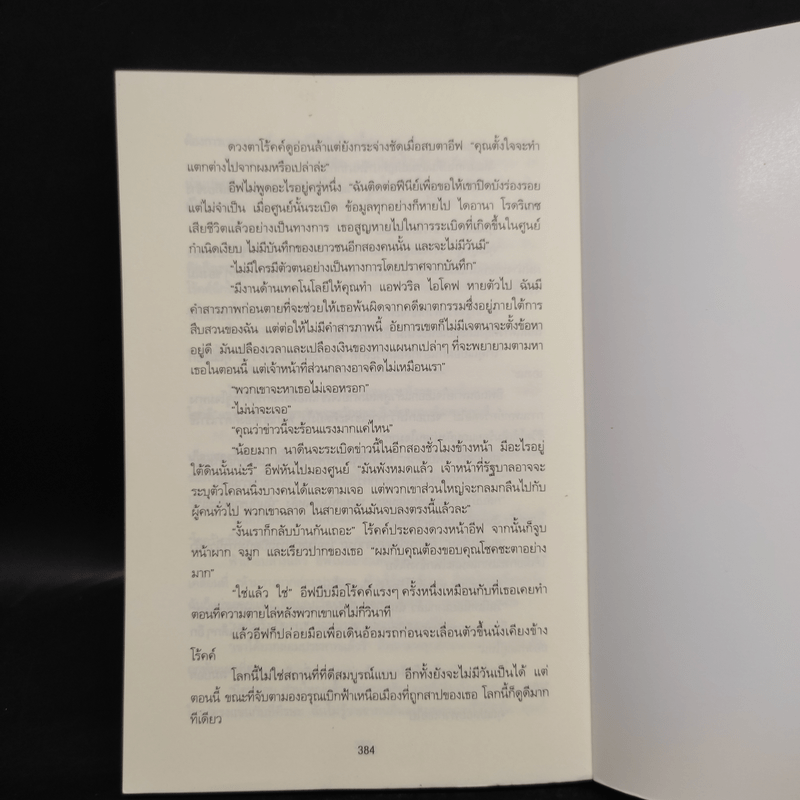 ดวงตาโร้คค์ดูอ่อนล้าแต่ยังกระจ่างชัดเมื่อสบตาอีฟ “คุณตั้งใจจะทำ
แตกต่างไปจากผมหรือเปล่าล่ะ”
อีฟไม่พูดอะไรอยู่ครู่หนึ่ง “ฉันติดต่อฟีนีย์เพื่อขอให้เขาปิดบังร่องรอย
แต่ไม่จำเป็น เมื่อศูนย์นั้นระเบิด ข้อมูลทุกอย่างก็หายไป ไดอานา โรดริเกซ
เสียชีวิตแล้วอย่างเป็นทางการ เธอสูญหายไปในการระเบิดที่เกิดขึ้นในศูนย์
กำเนิดเงียบ ไม่มีบันทึกของเยาวชนอีกสองคนนั้น และจะไม่มีวันมี”
“ไม่มีใครมีตัวตนอย่างเป็นทางการโดยปราศจากบันทึก”
“มีงานด้านเทคโนโลยีให้คุณทำ แอฟวริล ไอโคฟ หายตัวไป ฉันมี
คำสารภาพก่อนตายที่จะช่วยให้เธอพ้นผิดจากคดีฆาตกรรมซึ่งอยู่ภายใต้การ
สืบสวนของฉัน แต่ต่อให้ไม่มีคำสารภาพนี้ อัยการเขตก็ไม่มีเจตนาจะตั้งข้อหา
อยู่ดี มันเปลืองเวลาและเปลืองเงินของทางแผนกเปล่าๆ ที่จะพยายามตามหา
เธอในตอนนี้ แต่เจ้าหน้าที่ส่วนกลางอาจคิดไม่เหมือนเรา”
“พวกเขาจะหาเธอไม่เจอหรอก”
“ไม่น่าจะเจอ”
“คุณว่าข่าวนี้จะร้อนแรงมากแค่ไหน”
“น้อยมาก นาดีนจะระเบิดข่าวนี้ในอีกสองชั่วโมงข้างหน้า มีอะไรอยู่
ใต้ดินนั้นน่ะรึ” อีฟหันไปมองศูนย์ “มันพังหมดแล้ว เจ้าหน้าที่รัฐบาลอาจจะ
ระบุตัวโคลนนิ่งบางคนได้และตามเจอ แต่พวกเขาส่วนใหญ่จะกลมกลืนไปกับ
ผู้คนทั่วไป พวกเขาฉลาด ในสายตาฉันมันจบลงตรงนี้แล้วละ”
“งั้นเราก็กลับบ้านกันเถอะ” โร้คค์ประคองดวงหน้าอีฟ จากนั้นก็จูบ
หน้าผาก จมูก และเรียวปากของเธอ “ผมกับคุณต้องขอบคุณโชคชะตาอย่าง
มาก”
“ใช่แล้ว ใช่” อีฟบีบมือโร้คค์แรงๆ ครั้งหนึ่งเหมือนกับที่เธอเคยทำ
ตอนที่ความตายไล่หลังพวกเขาแค่ไม่กี่วินาที
แล้วอีฟก็ปล่อยมือเพื่อเดินอ้อมรถก่อนจะเลื่อนตัวขึ้นนั่งเคียงข้าง
โร้คค์
โลกนี้ไม่ใช่สถานที่ที่ดีสมบูรณ์แบบ อีกทั้งยังจะไม่มีวันเป็นได้ แต่
ตอนนี้ ขณะที่จับตามองอรุณเบิกฟ้าเหนือเมืองที่ถูกสาปของเธอ โลกนี้ก็ดูดีมาก
ทีเดียว
384